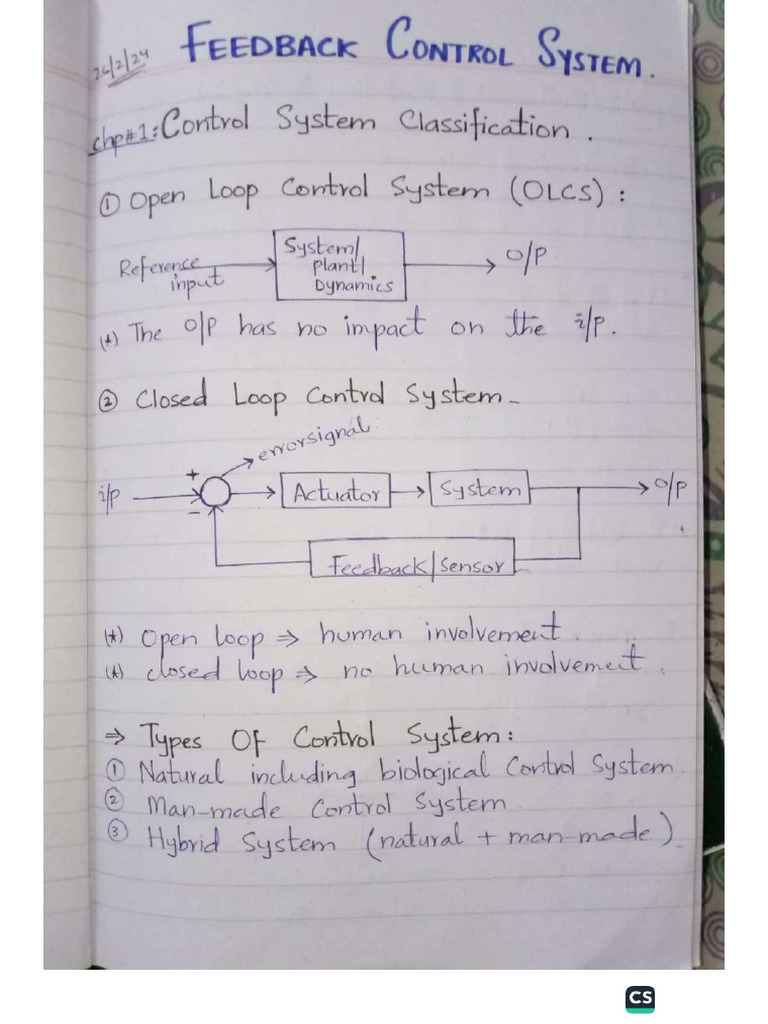 26/2/24 FEEDBACK CONTROL SYSTEM.
chp#1: Control System Classification.
① Open Loop Control System (OLCS):
Reference
input
System/
Plant/
Dynamics
O/P
(*) The O/P has no impact on the i/p.
② Closed Loop Control System-
errorsignal.
+
i/p
Actuator
System
O/P
-
Feedback/sensor
(*) Open loop ⇒ human involvement.
(*) closed loop ⇒ no human involvement.
⇒ Types Of Control System:
① Natural including biological Control System.
② Man-made Control System.
③ Hybrid System (natural + man-made).
CS